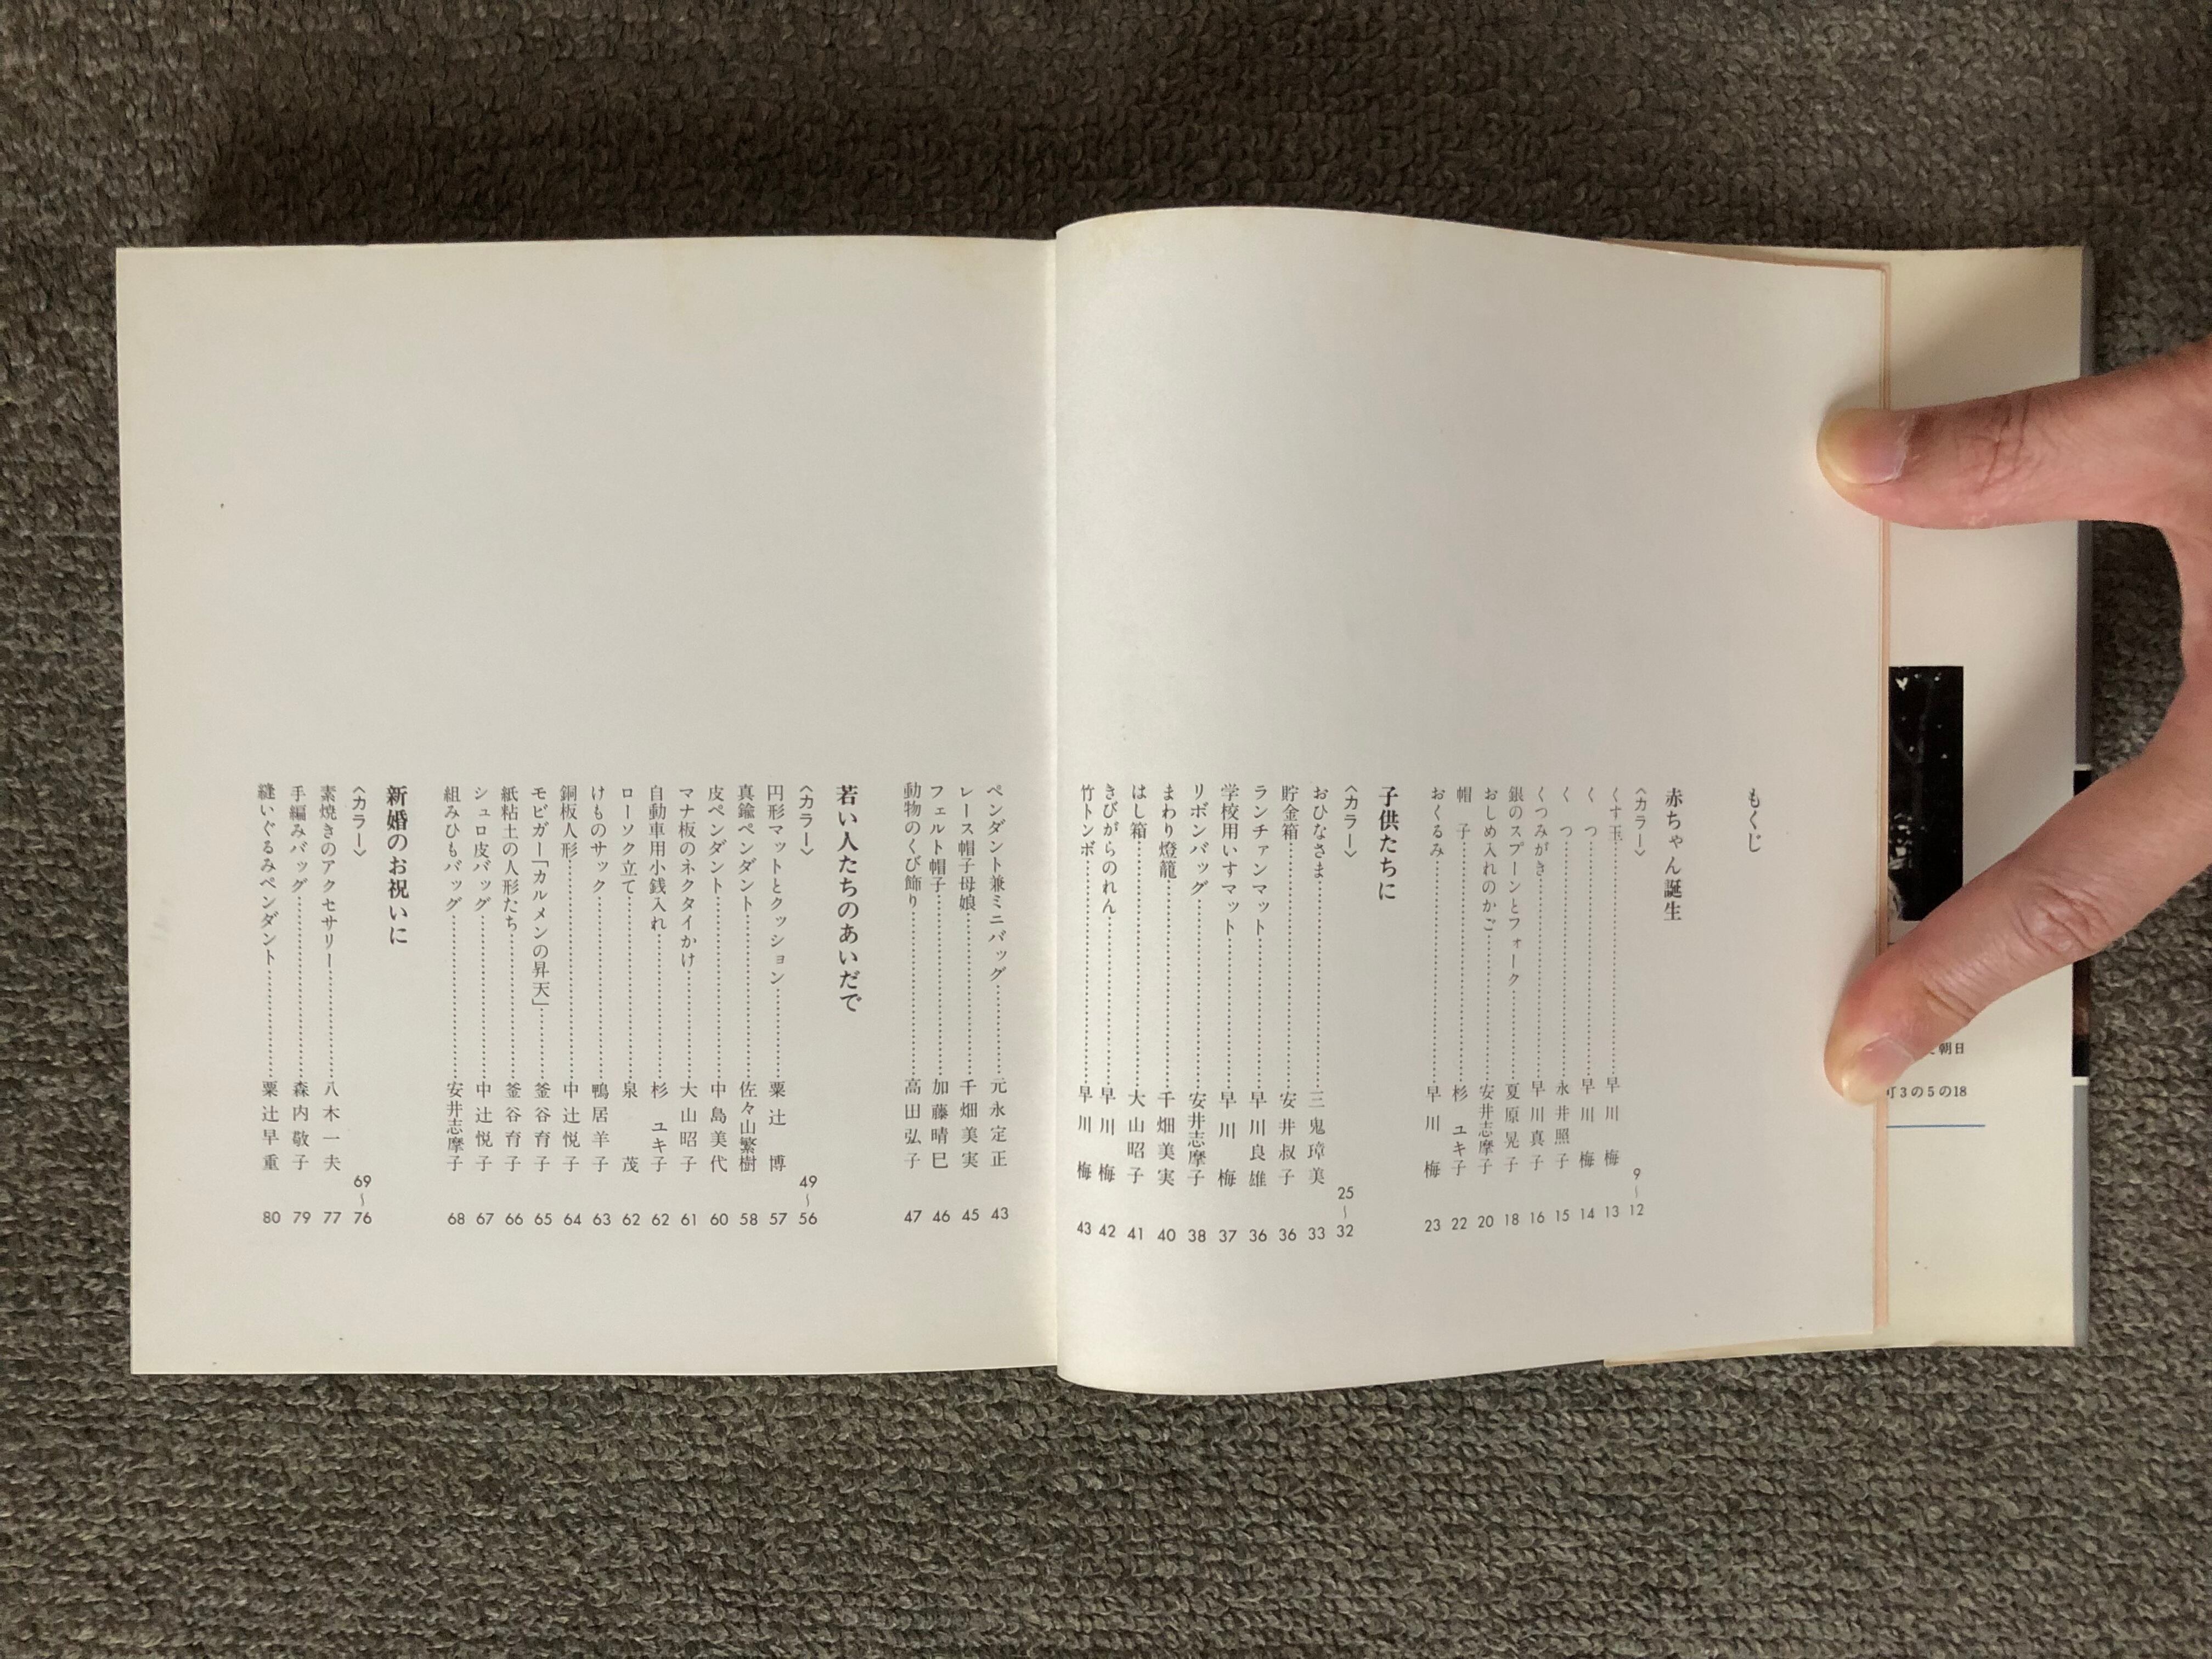 もくじ
赤ちゃん誕生
〈カラー〉 9〜12
くす玉……早川 梅 13
くつ……早川 梅 14
くつ……永井照子 15
くつみがき……早川真子 16
銀のスプーンとフォーク……夏原晃子 18
おしめ入れのかご……安井志摩子 20
帽子……杉 ユキ子 22
おくるみ……早川 梅 23
子供たちに
〈カラー〉 25〜32
おひなさま……三鬼璋美 33
貯金箱……安井叔子 36
ランチァンマット……早川良雄 36
学校用いすマット……早川 梅 37
リボンバッグ……安井志摩子 38
まわり燈籠……千畑美実 40
はし箱……大山昭子 41
きびがらのれん……早川 梅 42
竹トンボ……早川 梅 43
ペンダント兼ミニバッグ……元永定正 43
レース帽子母娘……千畑美実 45
フェルト帽子……加藤晴巳 46
動物のくび飾り……高田弘子 47
若い人たちのあいだで
〈カラー〉 49〜56
円形マットとクッション……粟辻 博 57
真鍮ペンダント……佐々山繁樹 58
皮ペンダント……中島美代 60
マナ板のネクタイかけ……大山昭子 61
自動車用小銭入れ……杉 ユキ子 62
ローソク立て……泉 茂 62
けものサック……鴨居羊子 63
銅板人形……中辻悦子 64
モビガー「カルメンの昇天」……釜谷育子 65
紙粘土の人形たち……釜谷育子 66
シュロ皮バッグ……中辻悦子 67
組みひもバッグ……安井志摩子 68
新婚のお祝いに
〈カラー〉 69〜76
素焼きのアクセサリー……八木一夫 77
手編みバッグ……森内敬子 79
縫いぐるみペンダント……粟辻早重 80
朝日
町3の5の18